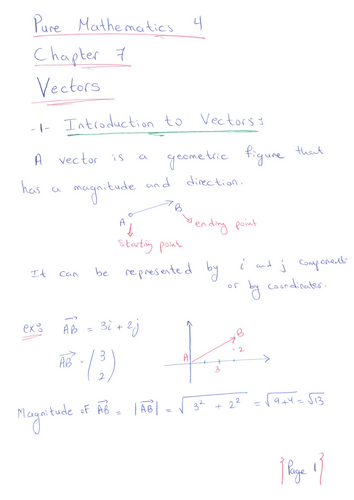 Pure Mathematics 4
Chapter 7
Vectors
-1- Introduction to Vectors:
A vector is a geometric figure that
has a magnitude and direction.
A B
ending point
starting point
It can be represented by i and j component
or by coordinates.
ex: \overrightarrow{AB} = 3i + 2j
\overrightarrow{AB} = \begin{pmatrix} 3 \\ 2 \end{pmatrix}
A B 2 3
Magnitude of \overrightarrow{AB} = |\overrightarrow{AB}| = \sqrt{3^2 + 2^2} = \sqrt{9+4} = \sqrt{13}
{Page 1}